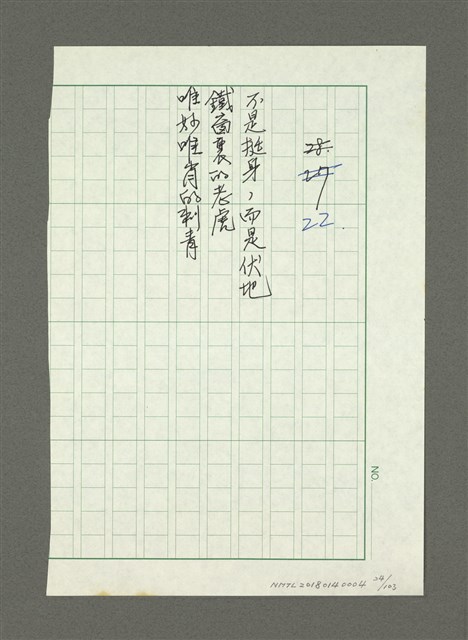 28.
22.
不是挺身，而是伏地
鐵窗裏的老虎
唯妙唯肖的刺青
NO.
NMTL20180140004 24/103